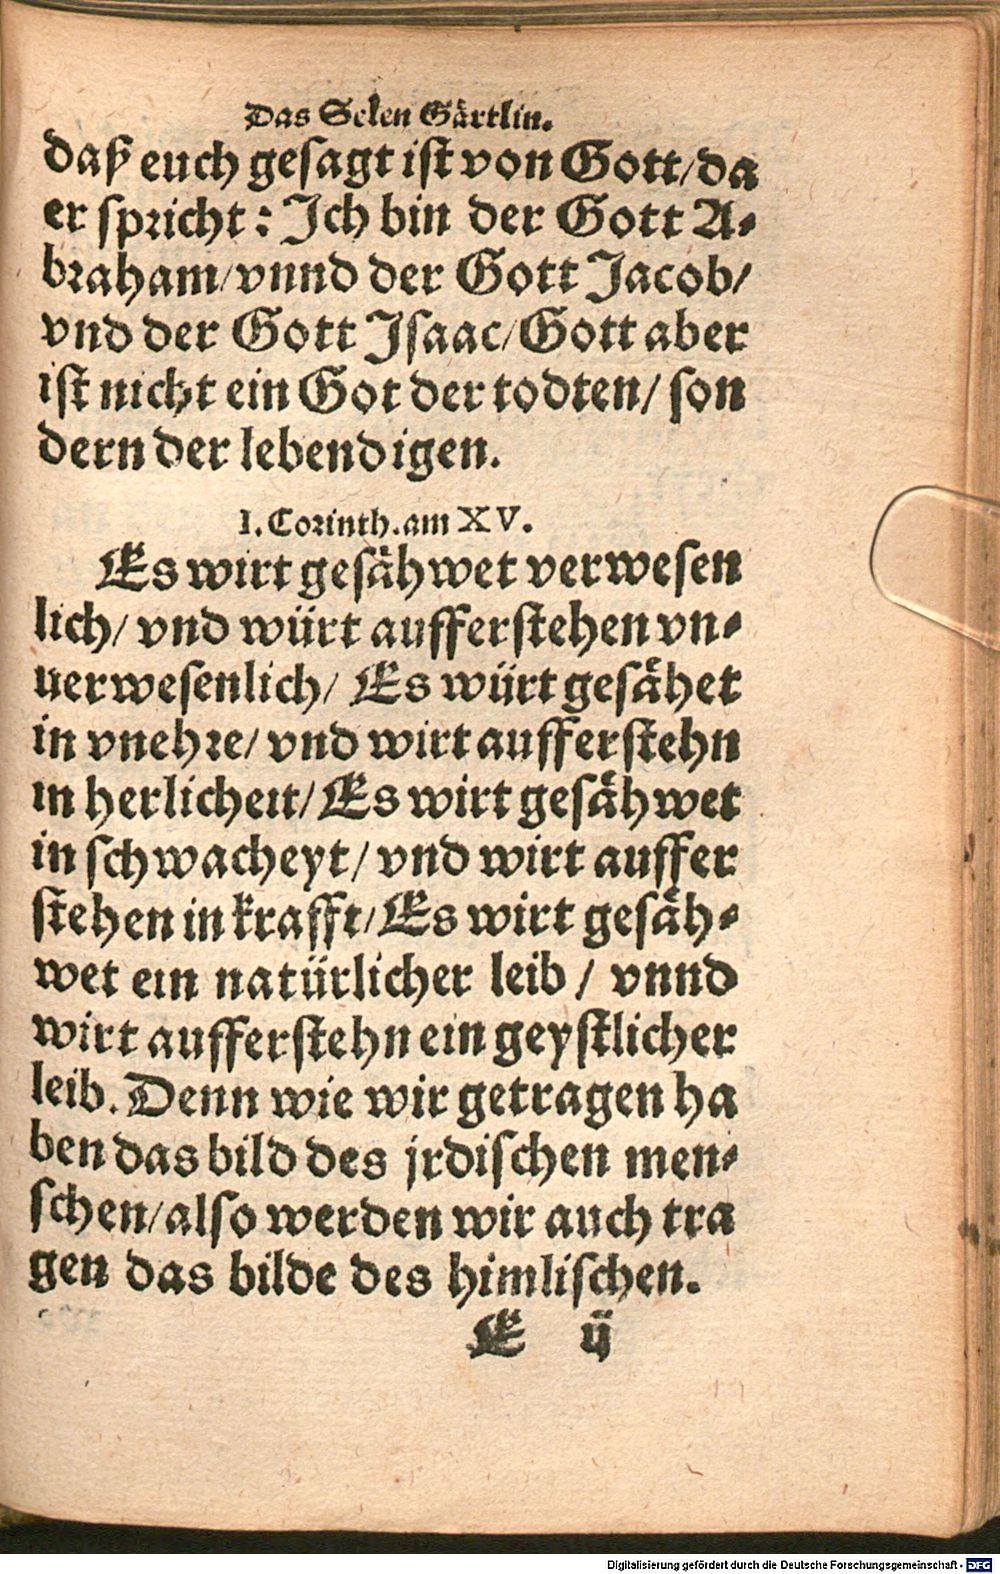 Das Selen Gärtlin.
daß euch gesagt ist von Gott/da
er spricht: Ich bin der Gott A-
braham/vnnd der Gott Jacob/
vnd der Gott Isaac/Gott aber
ist nicht ein Got der todten/ son
dern der lebendigen.
I. Corinth. am XV.
Es wirt gesähwet verwesen
lich/ vnd würt aufferstehen vn-
uerwesenlich/ Es würt gesähet
in vnehre/ vnd wirt aufferstehn
in herlicheit/ Es wirt gesähwet
in schwacheyt/ vnd wirt auffer
stehen in krafft/ Es wirt gesäh-
wet ein natürlicher leib / vnnd
wirt aufferstehn ein geystlicher
leib. Denn wie wir getragen ha
ben das bild des jrdischen men-
schen/also werden wir auch tra
gen das bilde des himlischen.
E ij
Digitalisierung gefördert durch die Deutsche Forschungsgemeinschaft - DFG